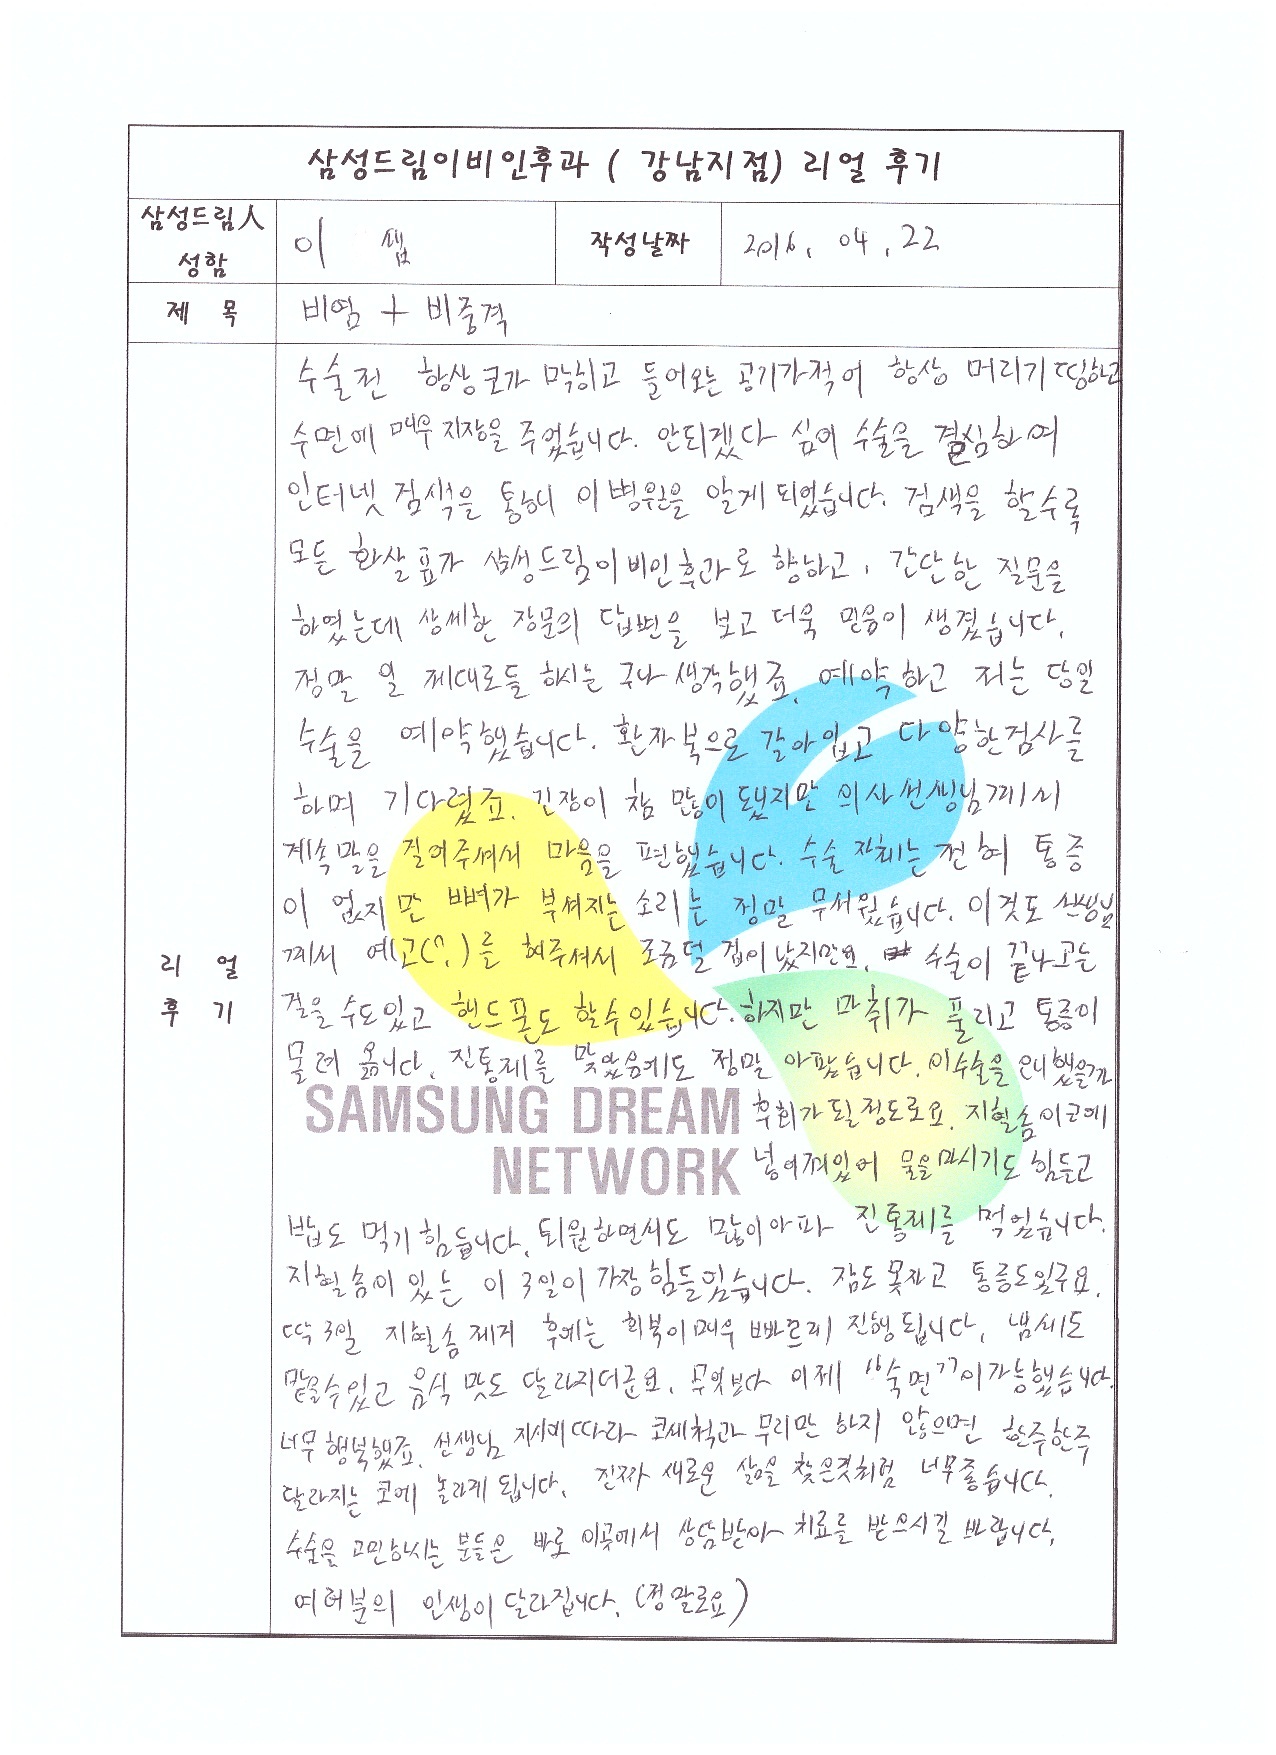 삼성드림이비인후과 ( 강남지점) 리얼 후기
삼성드림人 성함
이 샘
작성날짜
2016. 04. 22
제 목
비염 + 비중격
리 얼 후 기
수술전 항상 코가 막히고 들어오는 공기가적어 항상 머리가 띵하고
수면에 매우 지장을 주었습니다. 안되겠다 싶어 수술을 결심하여
인터넷 검색을 통해 이 병원을 알게 되었습니다. 검색을 할수록
모든 화살표가 삼성드림이비인후과로 향하고, 간단한 질문을
하였는데 상세한 장문의 답변을 보고 더욱 믿음이 생겼습니다.
정말 일 제대로들 하시는 구나 생각했죠. 예약하고 저는 당일
수술을 예약했습니다. 환자복으로 갈아입고 다양한검사를
하며 기다렸죠. 긴장이 참 많이 됐지만 의사선생님께서
계속말을 걸어주셔서 마음을 편했습니다. 수술 자체는 전혀 통증
이 없지만 뼈가 부셔지는 소리는 정말 무서웠습니다. 이것도 선생님
께서 예고(?)를 해주셔서 조금덜 겁이 났지만요. 수술이 끝나고는
걸을 수도있고 핸드폰도 할수있습니다. 하지만 마취가 풀리고 통증이
몰려 옵니다. 진통제를 맞았음에도 정말 아팠습니다. 이수술을 왜했을까
SAMSUNG DREAM
후회가 될정도로요. 지혈솜이코에
NETWORK
넣어져있어 물을마시기도 힘들고
밥도 먹기힘듭니다. 퇴원하면서도 많이아파 진통제를 먹었습니다.
지혈솜이 있는 이 3일이 가장힘들었습니다. 잠도못자고 통증도있구요.
딱 3일 지혈솜제거 후에는 회복이매우 빠르게 진행됩니다. 냄새도
맡을수있고 음식 맛도 달라지더군요. 무엇보다 이제 "숙면"이가능했습니다.
너무행복했죠. 선생님 지시에따라 코세척과 무리만 하지 않으면 한주한주
달라지는 코에 놀라게 됩니다. 진짜 새로운 삶을 찾은것처럼 너무좋습니다.
수술을 고민하시는 분들은 바로 이곳에서 상담받아 치료를 받으시길 바랍니다.
여러분의 인생이 달라집니다. (정말로요)